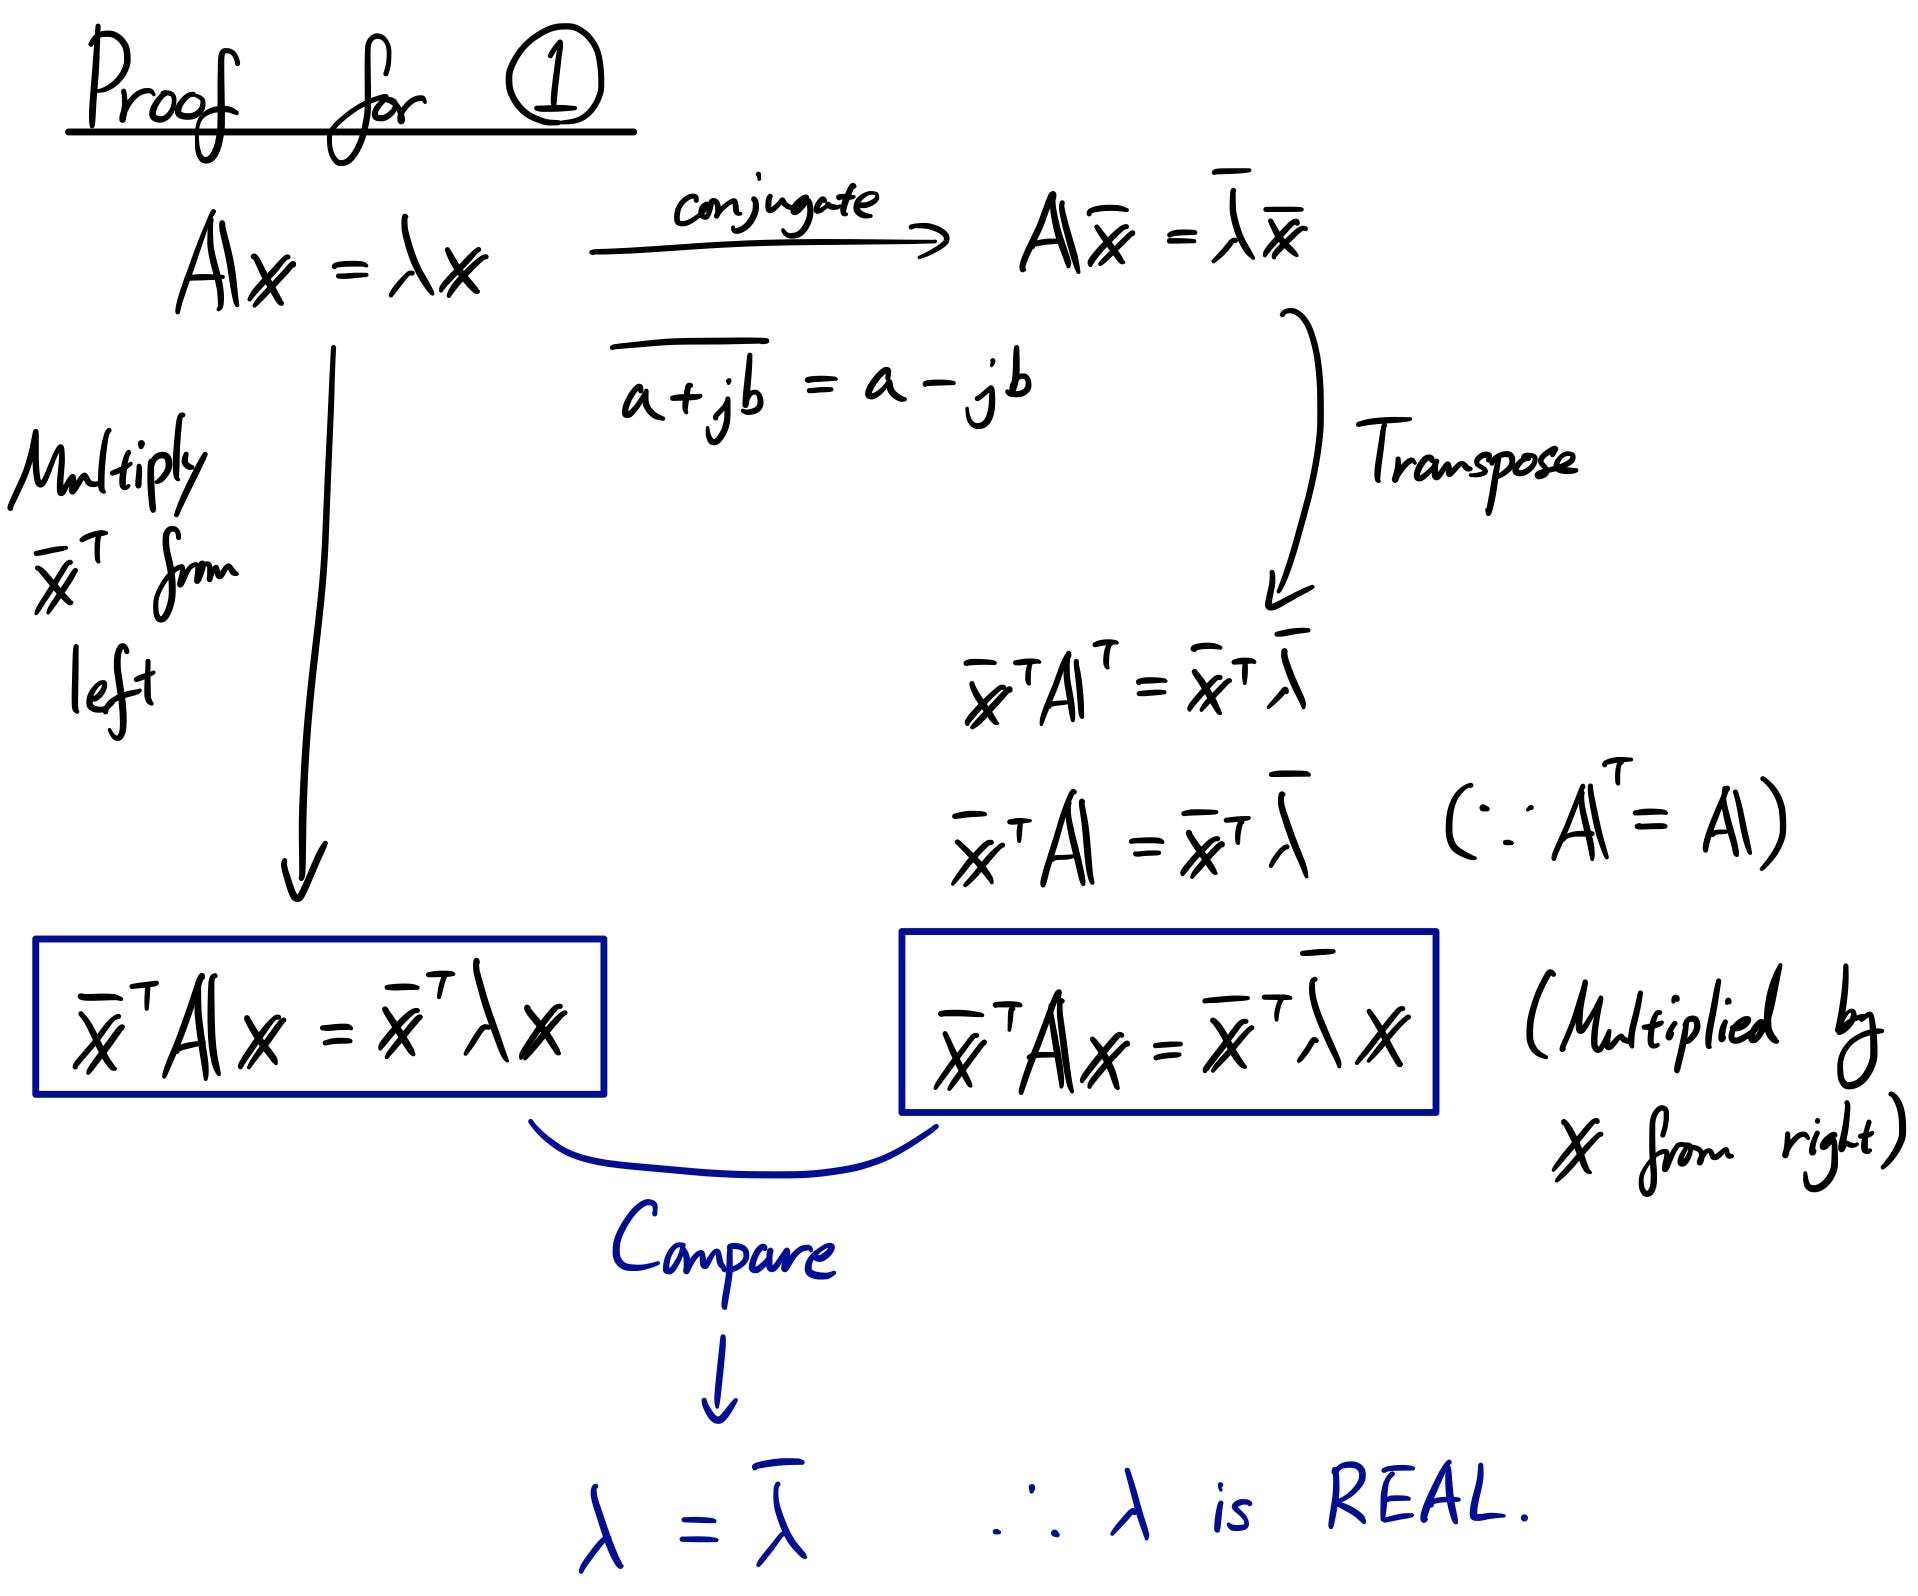 Proof for ①
𝔸𝕩 = λ𝕩
conjugate
𝔸x̄ = λ̄x̄
a+jb̅ = a - jb
Multiply
x̄ᵀ from
left
Transpose
x̄ᵀ𝔸ᵀ = x̄ᵀλ̄
x̄ᵀ𝔸 = x̄ᵀλ̄ (∵ 𝔸ᵀ = 𝔸)
x̄ᵀ𝔸𝕩 = x̄ᵀλ𝕩
x̄ᵀ𝔸𝕩 = x̄ᵀλ̄𝕩 (Multiplied by
𝕩 from right)
Compare
λ = λ̄ ∴ λ is REAL.